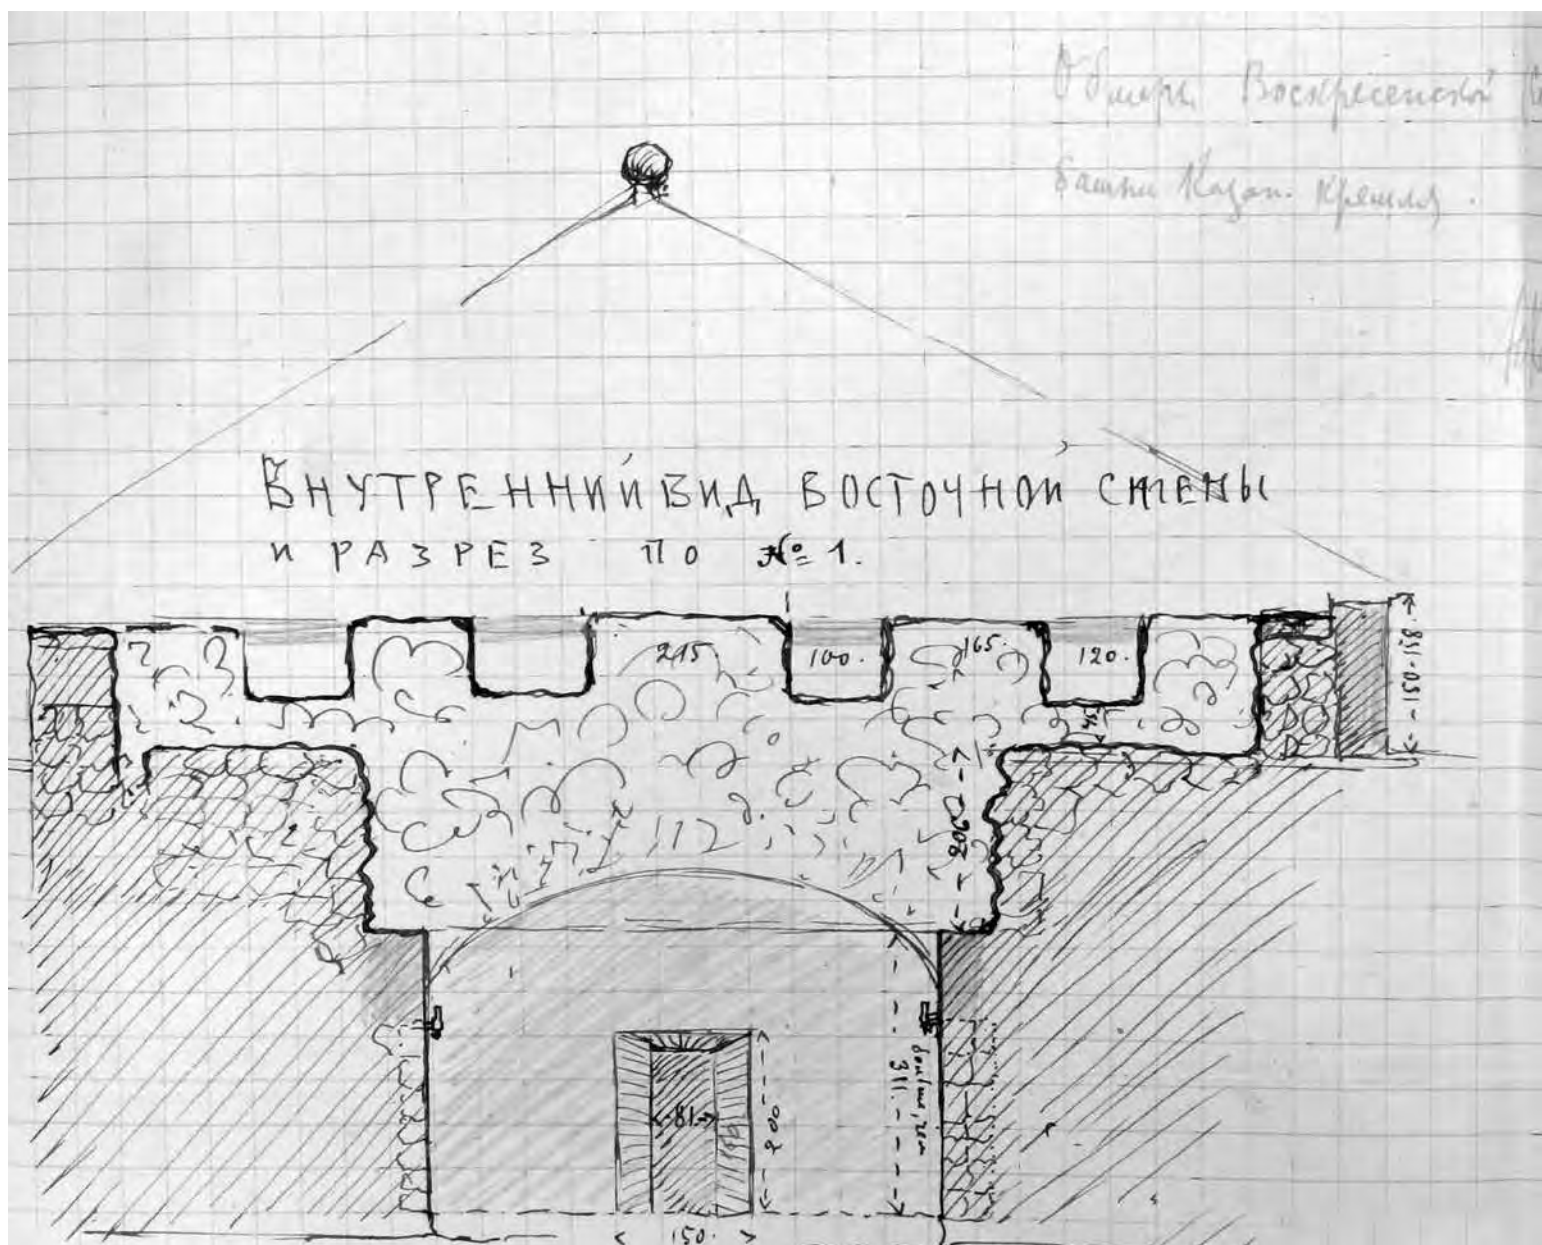 Обмеры Воскресенской
башни Казан. Кремля.
ВНУТРЕННИЙ ВИД ВОСТОЧНОЙ СТЕНЫ
И РАЗРЕЗ ПО № 1.
215 100. 165. 120.
150-158
54
208
больше, чем
311.
200
81
150.